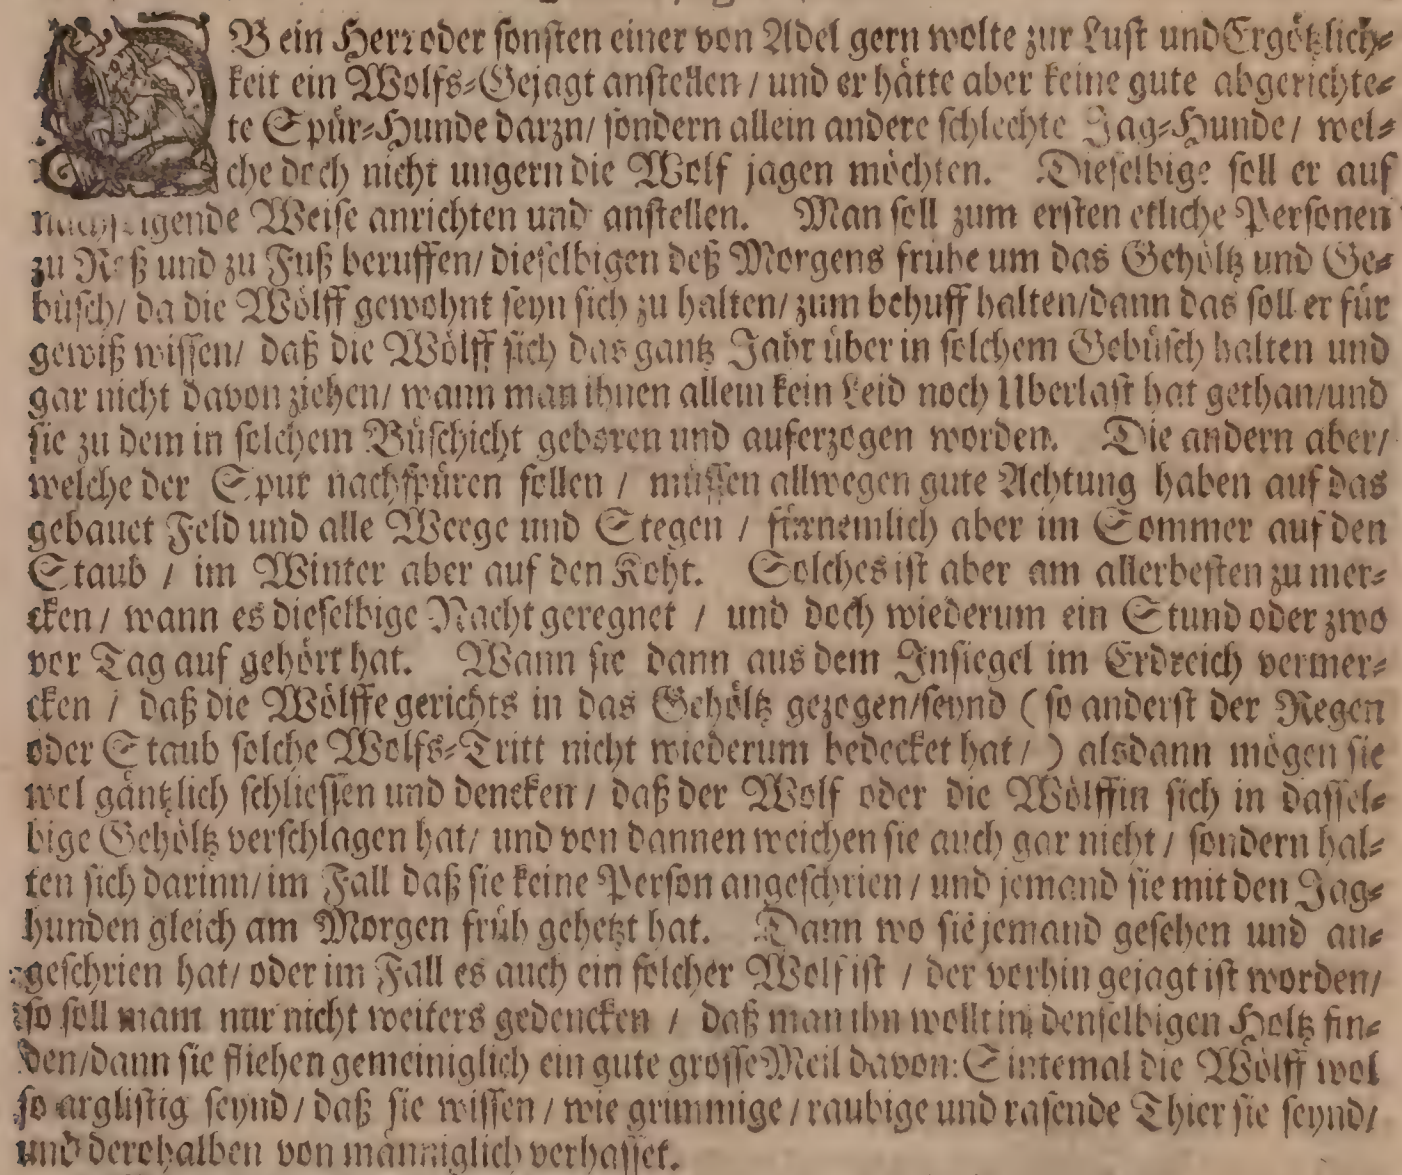 OB ein Herr oder sonsten einer von Adel gern wolte zur Lust und Ergötzlich-
keit ein Wolfs-Gejagt anstellen / und er hätte aber keine gute abgerichte-
te Spür-Hunde darzu / sondern allein andere schlechte Jag-Hunde / wel-
che doch nicht ungern die Wölf jagen möchten. Dieselbige soll er auf
nachfolgende Weise anrichten und anstellen. Man soll zum ersten etliche Personen
zu Roß und zu Fuß beruffen / dieselbigen deß Morgens frühe um das Gehöltz und Ge-
büsch / da die Wölff gewohnt seyn sich zu halten / zum behuff halten / dann das soll er für
gewiß wissen / daß die Wölff sich das gantz Jahr über in solchem Gebüsch halten und
gar nicht davon ziehen / wann man ihnen allein kein Leid noch Uberlast hat gethan / und
sie zu dem in solchem Büschicht geboren und auferzogen worden. Die andern aber /
welche der Spur nachspüren sollen / müssen allwegen gute Achtung haben auf das
gebauet Feld und alle Weege und Stegen / fürnemlich aber im Sommer auf den
Staub / im Winter aber auf den Koht. Solches ist aber am allerbesten zu mer-
cken / wann es dieselbige Nacht geregnet / und doch wiederum ein Stund oder zwo
vor Tag auf gehört hat. Wann sie dann aus dem Insiegel im Erdreich vermer-
cken / daß die Wölffe gerichts in das Gehöltz gezogen / seynd ( so anderst der Regen
oder Staub solche Wolfs-Tritt nicht wiederum bedecket hat / ) alsdann mögen sie
wol gäntzlich schliessen und dencken / daß der Wolf oder die Wölffin sich in dassel-
bige Gehöltz verschlagen hat / und von dannen weichen sie auch gar nicht / sondern hal-
ten sich darinn / im Fall daß sie keine Person angeschrien / und jemand sie mit den Jag-
hunden gleich am Morgen früh gehetzt hat. Dann wo sie jemand gesehen und an-
geschrien hat / oder im Fall es auch ein solcher Wolf ist / der vorhin gejagt ist worden /
so soll mant nur nicht weiters gedencken / daß man ihn wollt in denselbigen Holtz fin-
den / dann sie fliehen gemeiniglich ein gute grosse Meil davon: Sintemal die Wölff wol
so arglistig seynd / daß sie wissen / wie grimmige / raubige und rasende Thier sie seynd /
und derohalben von männiglich verhasset.